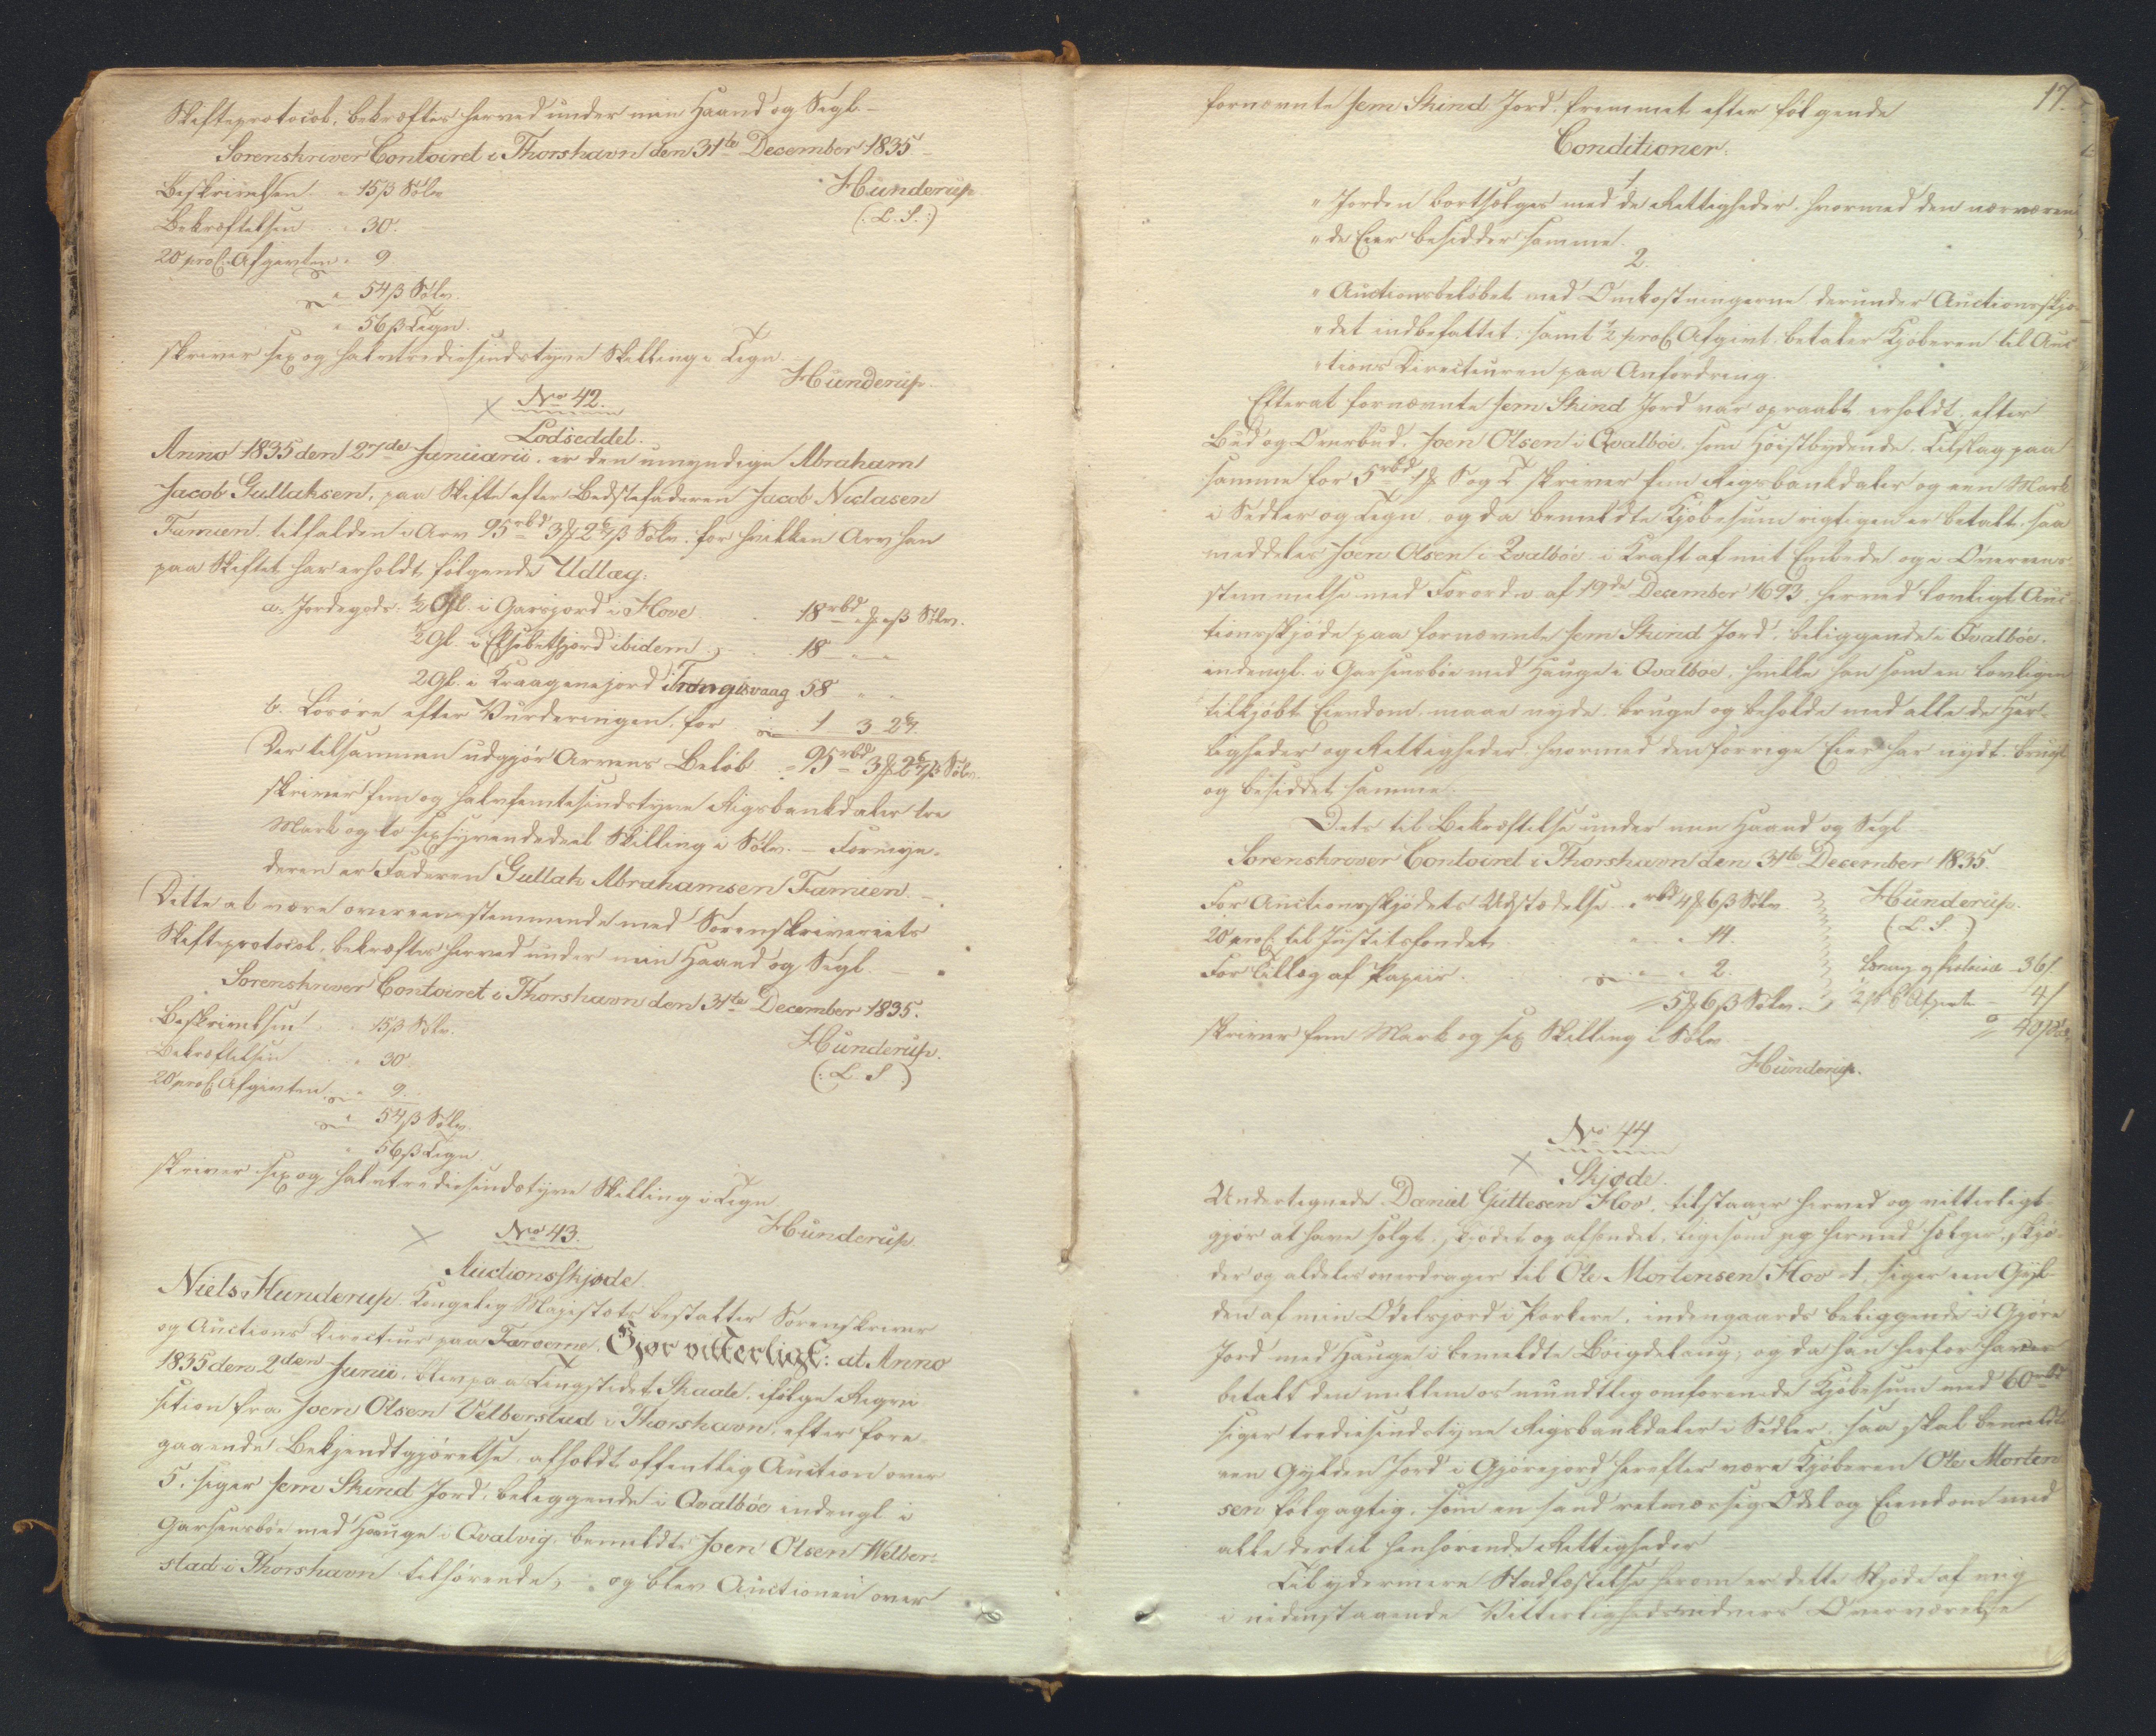 Skifteprotocol, bekræftes herved under min Haand og Segl. –
Sorenskriver Contoiret i Thorshavn den 31te December 1835 –
Hunderup
(: L. S. :)
Beskrivelsen " 15 β Sølv
Bekræftelsen " 30.
20 proC. Afgiften " 9.
" 54 β Sølv.
" 56 β Tegn.
skriver sex og halvtrediesindstyve Skilling i Tegn.
Hunderup.
No 42.
Lodseddel.
Anno 1835 den 27de Januarii, er den umyndige Abraham
Jacob Gullaksen, paa Skifte efter Bedstefaderen Jacob Niclasen
Famien, tilfalden i Arv 95 rbd 3 ℳ 2 6/7 β Sølv, for hvilken Arv han
paa Skiftet har erholdt følgende Udlæg:
a. Jordegods: ½ Gl. i Garsjord i Hove 18 rbd " ℳ " β Sølv.
½ Gl. i Elsebetsjord ibidem 18 " "
2 Gl. i Kraagenejord i Trongisvaag 58 " "
b. Løsøre efter Vurderingen, for 1 3 2 6/7.
Der tilsammen udgjør Arvens Beløb 95 rbd 3 ℳ 2 6/7 β Sølv.
skriver fem og halvfemtesindstyve Rigsbankdaler tre
Mark og to sexsyvendedeel Skilling i Sølv. – Formyn-
deren er Faderen Gullak Abrahamsen Famien. –
Dette at være overeensstemmende med Sorenskriveriets
Skifteprotocol, bekræftes herved under min Haand og Segl. –
Sorenskriver Contoiret i Thorshavn den 31te December 1835.
Hunderup.
(: L. S. :)
Beskrivelsen " 15 β Sølv.
Bekræftelsen " 30.
20 proC. Afgiften " 9.
" 54 β Sølv.
" 56 β Tegn
skriver sex og halvtrediesindstyve Skilling i Tegn
Hunderup.
No 43.
Auctionsskjøde.
Niels Hunderup, Kongelig Majestæts bestalter Sorenskriver
og Auctions Directeur paa Færøerne, Gjør vitterligt: at Anno
1835 den 2den Junii, blev paa Tingstedet Skaale, ifølge Reqvi-
sition fra Joen Olsen Velberstad i Thorshavn, efter fore-
gaaende Bekjendtgjørelse, afholdt offentlig Auction over
5, siger fem Skind Jord, beliggende i Qvalbøe indengl i
Garsensbøe med Hauge i Qvalvig, bemeldte Joen Olsen Welber-
stad i Thorshavn tilhørende, – og blev Auctionen over
17.
fornævnte fem Skind Jord, fremmet efter følgende
Conditioner.
1.
" Jorden bortsælges med de Rettigheder, hvormed den nærværen-
" de Eier besidder samme.
2.
" Auctionsbeløbet med Omkostningerne derunder Auctionsskjø-
" det indbefattet, samt ½ proC. Afgivt, betaler Kjøberen til Auc-
" tions Directeuren paa Anfordring.
Efterat fornævnte fem Skind Jord var opraabt, erholdt, efter
Bud og Overbud, Joen Olsen i Qvalbøe, som Høistbydende, Tilslag paa
samme for 5 rbd 1 ℳ S og T skriver fem Rigsbankdaler og een Mark
i Sedler og Tegn, og da bemeldte Kjøbesum rigtigen er betalt, saa
meddeles Joen Olsen i Qvalbøe i Kraft af mit Embede og i Overeens-
stemmelse med Forordn af 19de December 1693, herved lovligt Auc-
tionsskjøde paa fornævnte fem Skind Jord, beliggende i Qvalbøe,
indengl. i Garsensbøe med Hauge i Qvalbøe, hvilke han som en lovligen
tilkjøbt Eiendom, maae nyde, bruge og beholde med alle de Her-
ligheder og Rettigheder, hvormed den forrige Eier har nydt, brugt
og besiddet samme.
Dets til Bekræftelse under min Haand og Segl.
Sorenskriver Contoiret i Thorshavn den 31te December 1835.
Hunderup.
(: L. S. :)
For Auctionsskjødets Udstædelse " rbd 4 ℳ 6 β Sølv.
20 proC. til Justitsfondet " " 14.
For Tillæg af Papiir " " 2.
5 ℳ 6 β Sølv.
36 β
½ pr C Afgivt – 4 β
40 β
skriver fem Mark og sex Skilling i Sølv
Hunderup.
No 44
Skjøde.
Undertegnede Daniel Guttesen Hov, tilstaaer herved og vitterligt-
gjør at have solgt, skjødet og afhændet, ligesom jeg hermed sælger, skjø-
der og aldeles overdrager til Ole Mortensen Hov 1, siger een Gyl-
den af min Odelsjord i Porkere, indengaards beliggende i Gjøre
Jord med Hauge i bemeldte Bøigdelaug; og da han herfor haver
betalt den mellem os mundtlig omforenede Kjøbesum med 60 rbd
siger trediesindstyve Rigsbankdaler i Sedler, saa skal bemeldte
een Gylden Jord i Gjørejord herefter være Kjøberen Ole Morten-
sen følgagtig, som en sand retmæssig Odel og Eiendom med
alle dertil henhørende Rettigheder
Til ydermere Stadfæstelse herom er dette Skjøde af mig
i nedenstaaende Vitterlighedsvidners Overværelse